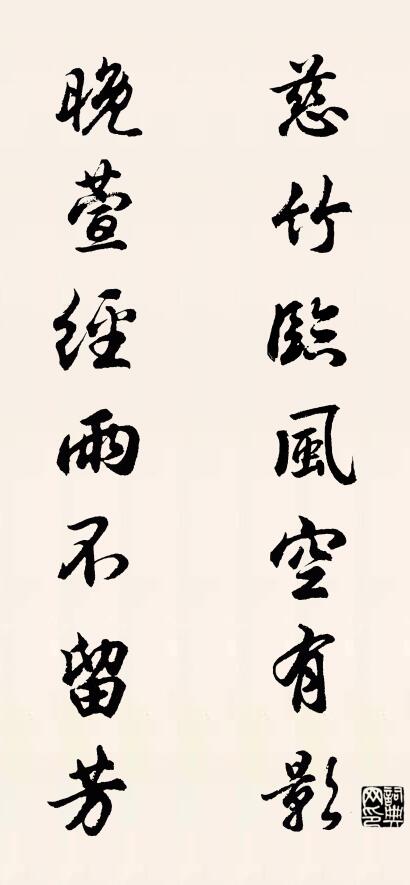 慈竹臨風空有影
晚萱經雨不留芳
詞典網印